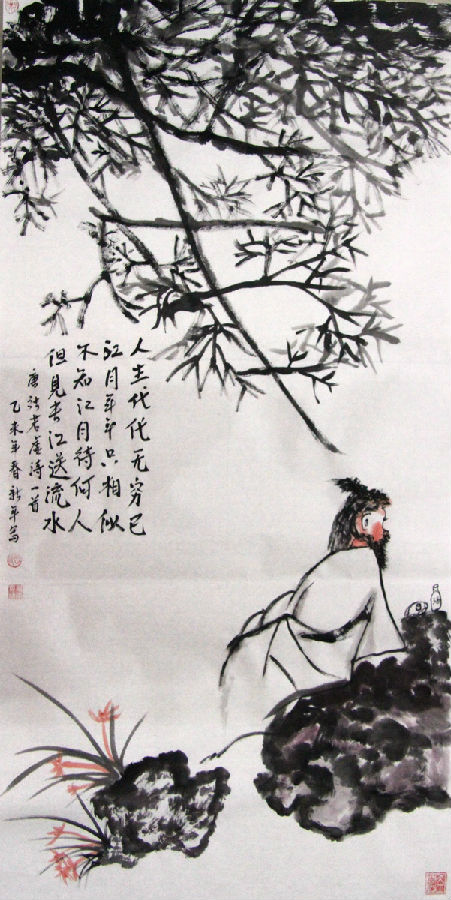 人生代代无穷已
江月年年只相似
不知江月待何人
但見长江送流水
唐张若虚诗一首
乙未年春新平写